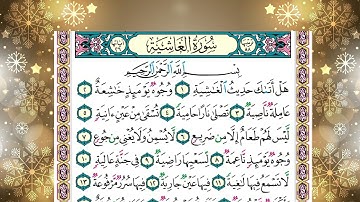 سُورَةُ الْغَاشِيَةِ
بِسْمِ اللَّهِ الرَّحْمَٰنِ الرَّحِيمِ
هَلْ أَتَىٰكَ حَدِيثُ الْغَٰشِيَةِ ١ وُجُوهٌ يَوْمَئِذٍ خَٰشِعَةٌ ٢
عَامِلَةٌ نَّاصِبَةٌ ٣ تَصْلَىٰ نَارًا حَامِيَةً ٤ تُسْقَىٰ مِنْ عَيْنٍ ءَانِيَةٍ ٥
لَّيْسَ لَهُمْ طَعَامٌ إِلَّا مِن ضَرِيعٍ ٦ لَّا يُسْمِنُ وَلَا يُغْنِي مِن جُوعٍ ٧
وُجُوهٌ يَوْمَئِذٍ نَّاعِمَةٌ ٨ لِّسَعْيِهَا رَاضِيَةٌ ٩ فِي جَنَّةٍ عَالِيَةٍ ١٠
لَّا تَسْمَعُ فِيهَا لَٰغِيَةً ١١ فِيهَا عَيْنٌ جَارِيَةٌ ١٢ فِيهَا سُرُرٌ مَّرْفُوعَةٌ ١٣